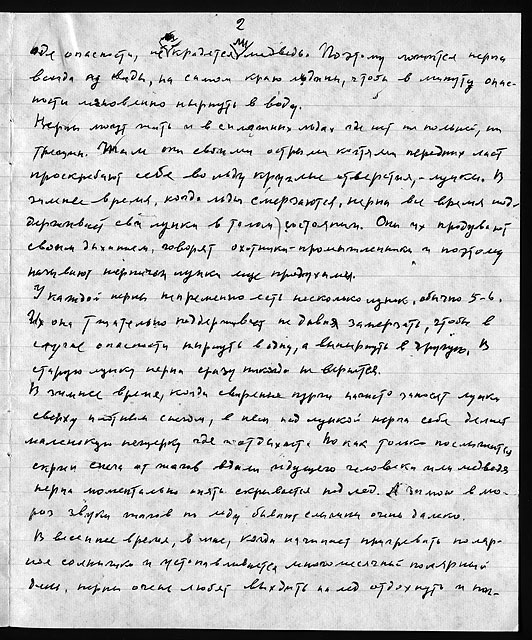 2
где опасности, не крадется ли медведь. Поэтому ложится нерпа
всегда у воды, на самом краю льдины, чтобы в минуту опас-
ности мгновенно нырнуть в воду.
Нерпы могут жить и в сплошных льдах где нет ни полыней, ни
трещин. Там они своими острыми когтями передних ласт
проскребают себе во льду круглые отверстия, - лунки. В
зимнее время, когда льды смерзаются, нерпа все время под-
держивает свои лунки в талом состоянии. Они их продувают
своим дыханием, говорят охотники-промышленники и поэтому
называют нерпичьи лунки еще продухами.
У каждой нерпы непременно есть несколько лунок, обычно 5-6.
Их она тщательно поддерживает не давая замерзать, чтобы в
случае опасности нырнуть в одну, а вынырнуть в другую. В
старую лунку нерпа сразу никогда не вернется.
В зимнее время, когда свирепые пурги начисто заносят лунки
сверху плотным снегом, в нем над лункой нерпа себе делает
маленькую пещерку где и отдыхает. Но как только послышится
скрип снега от шагов вдали идущего человека или медведя
нерпа моментально опять скрывается под лед. А зимою в мо-
роз звуки шагов по льду бывают слышны очень далеко.
В весеннее время, в мае, когда начинает пригревать поляр-
ное солнышко и устанавливается многомесячный полярный
день, нерпы очень любят выходить на лед отдохнуть и пог-